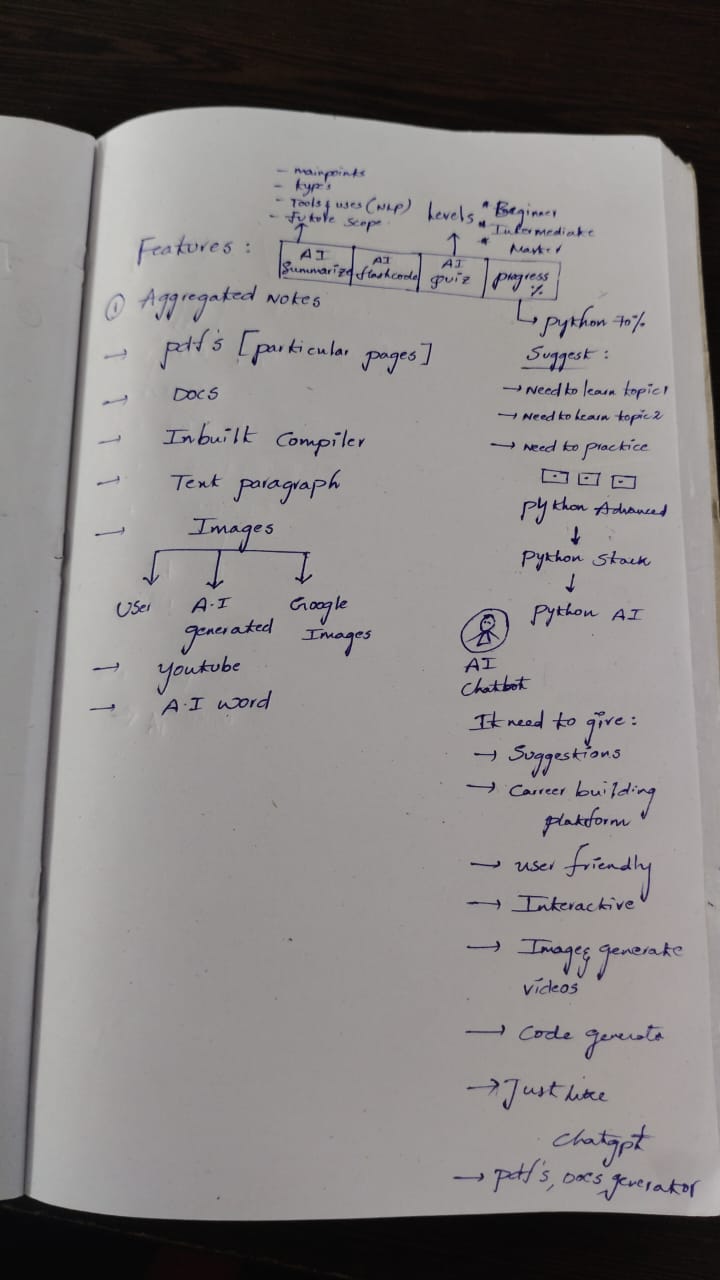 - mainpoints
- Kyp's
- Tools & uses (NLP)
- future scope
Levels * Beginner
* Intermediate
* Master
Features :
AI Summarize
AI flashcode
AI quiz
progress %
① Aggregated Notes
→ pdf's [particular pages]
→ Docs
→ Inbuilt Compiler
→ Text paragraph
→ Images
User
A.I generated
Google Images
→ youtube
→ A.I word
python 70%
Suggest :
→ Need to learn topic1
→ Need to learn topic2
→ Need to practice
python Advanced
↓
Python Stack
↓
python AI
AI
Chatbot
It need to give :
→ Suggestions
→ Carreer building
platform
→ user friendly
→ Interactive
→ Image & generate
videos
→ Code generate
→ Just like
Chatgpt
→ pdf's, Docs generator